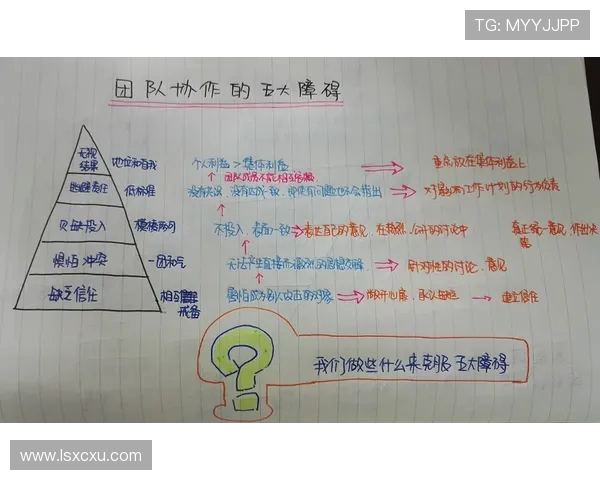 TG: MYYJJPP
团队协作的五大障碍
无视结果 地位和自我 个人利益>集体利益 重点放在集体利益上
团队成员不能相互
逃避责任 低标准 没有 对影响工作计划的行为负责
欠缺投入 模棱两可 不投入、表面一致 表达自己的意见、在激烈、公开的讨论中 真正统一意见,作出决策
惧怕冲突 一团和气 无法产生直接而激烈的思想交锋 针对性的讨论、意见
缺乏信任 相互戒备 害怕成为别人攻击的对象 敞开心扉、承认 建立信任
我们做些什么来克服五大障碍
www.lsxcxu.com